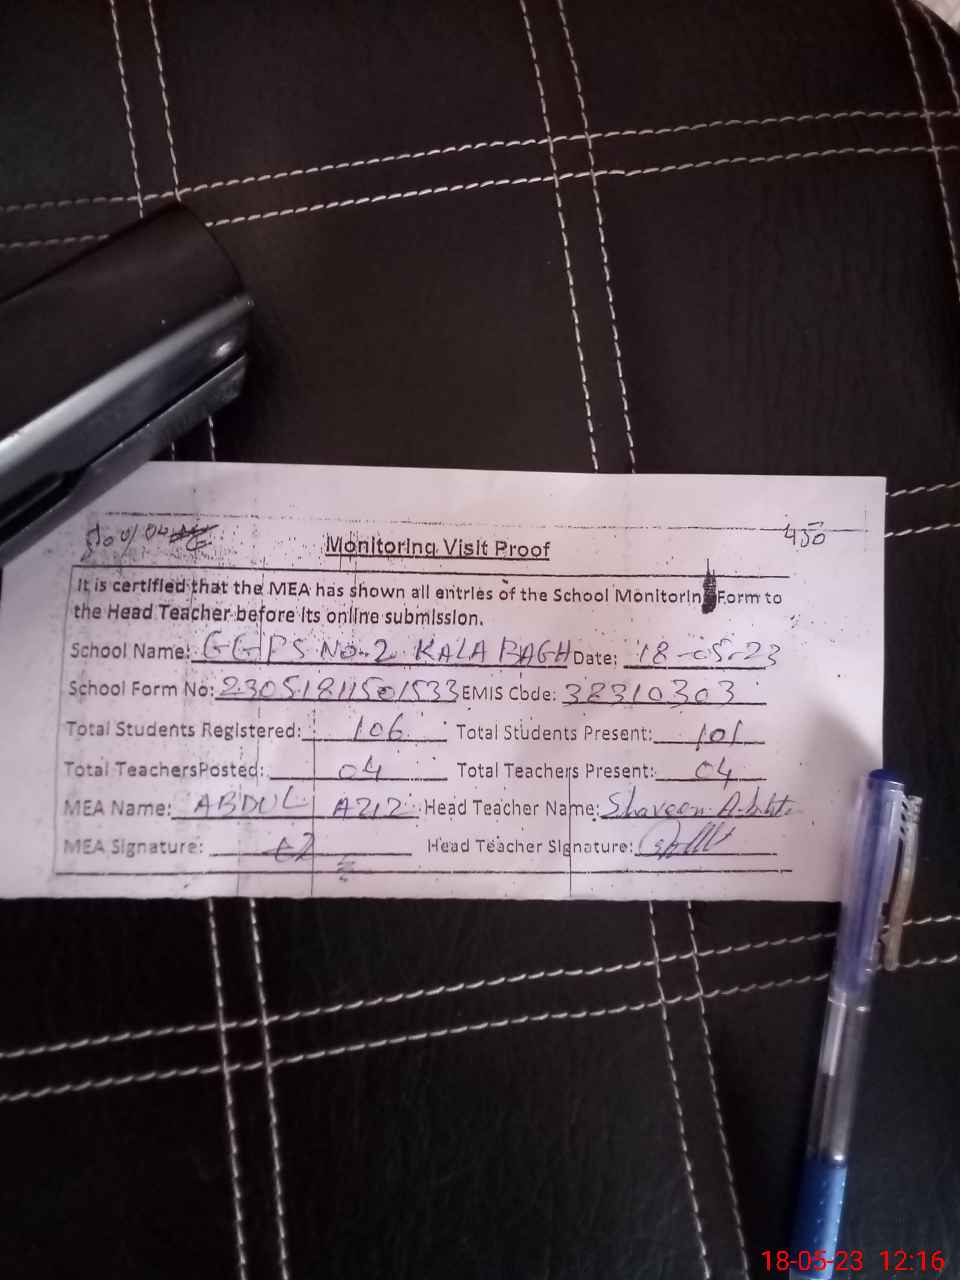 450
Monitoring Visit Proof
It is certified that the MEA has shown all entries of the School Monitoring Form to
the Head Teacher before its online submission.
School Name: GGPS NO.2 KALA BAGH Date: 18-05-23
School Form No: 23051811501533 EMIS Code: 38310303
Total Students Registered: 106 Total Students Present: 101
Total TeachersPosted: 04 Total Teachers Present: 04
MEA Name: ABDUL AZIZ Head Teacher Name:
MEA Signature: Head Teacher Signature:
18-05-23 12:16